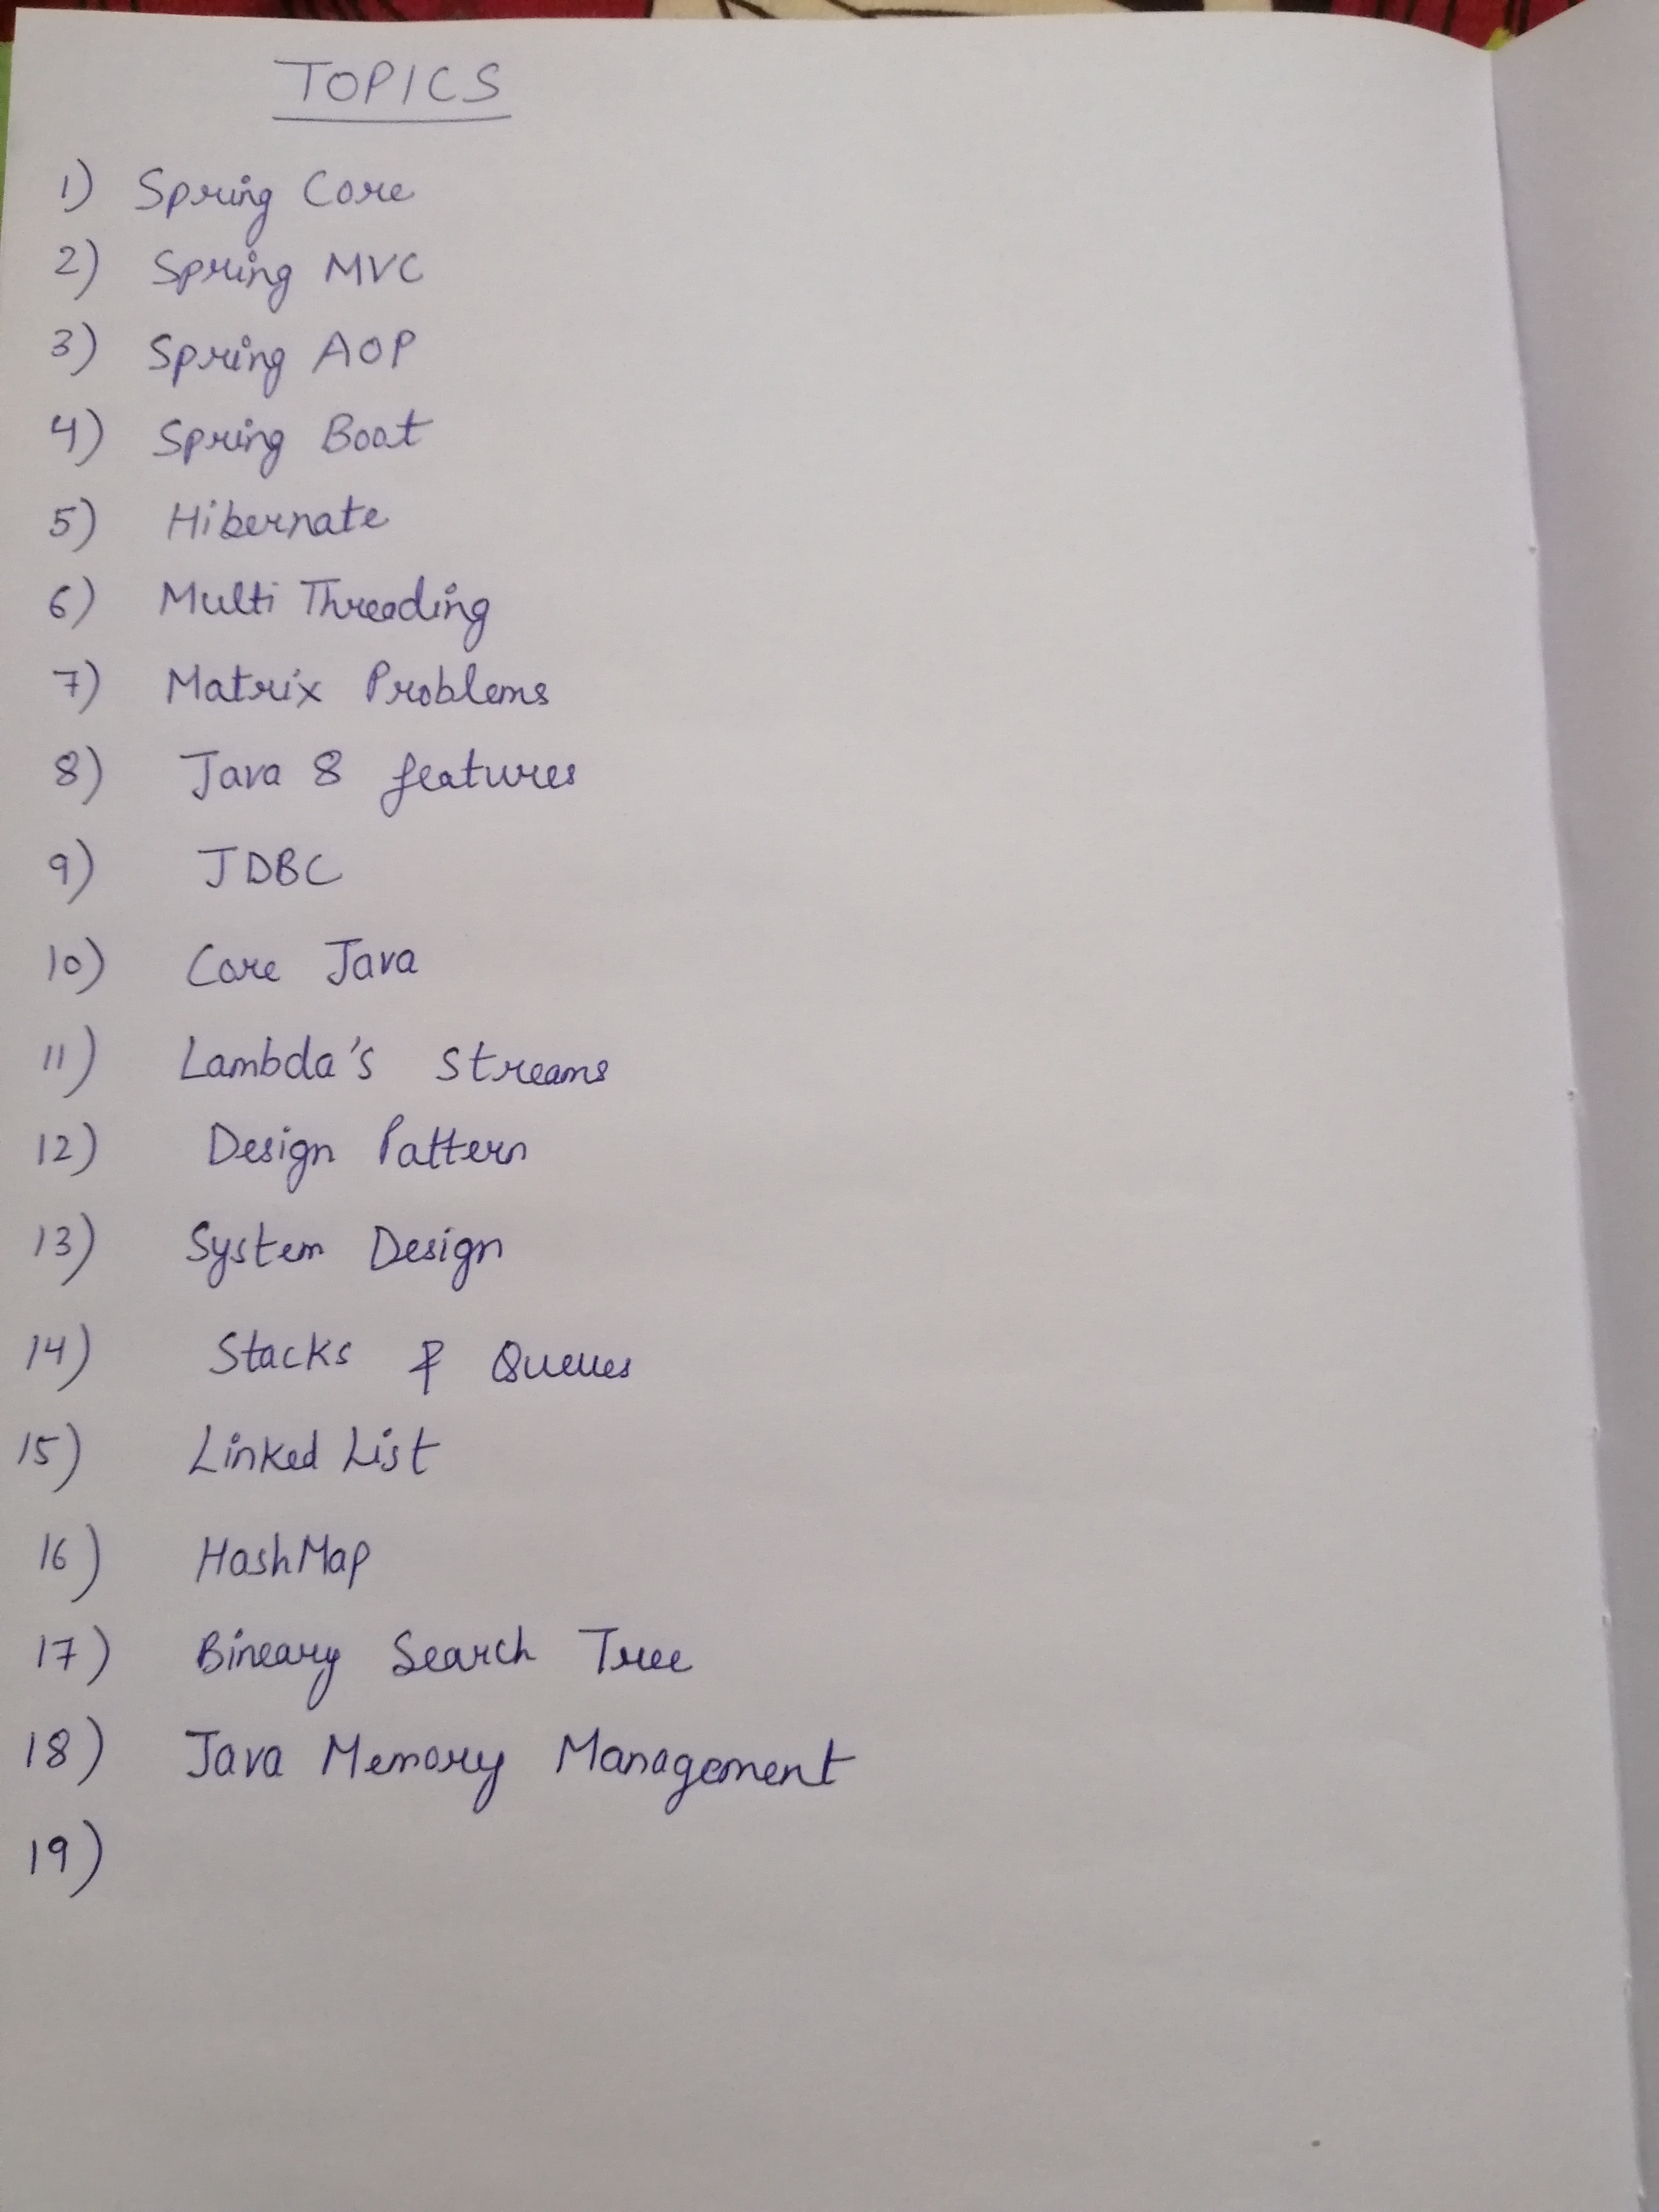 TOPICS
1) Spring Core
2) Spring MVC
3) Spring AOP
4) Spring Boot
5) Hibernate
6) Multi Threading
7) Matrix Problems
8) Java 8 features
9) JDBC
10) Core Java
11) Lambda's Streams
12) Design Pattern
13) System Design
14) Stacks & Queues
15) Linked List
16) HashMap
17) Bineary Search Tree
18) Java Memory Management
19)